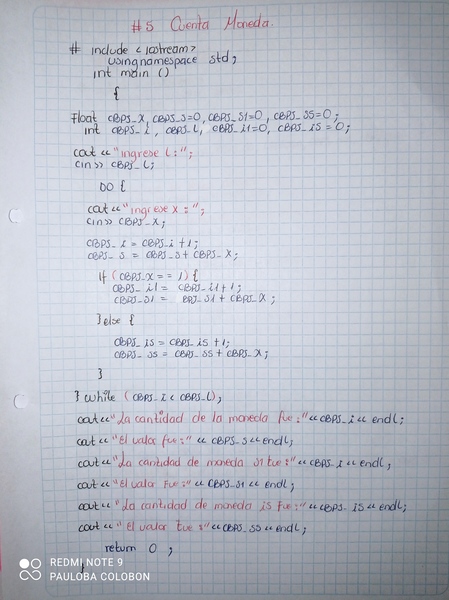 #5 Cuenta Moneda.
# include <iostream>
using namespace std;
int main ()
{
float CBPS_X, CBPS_S=0, CBPS_S1=0, CBPS_SS=0;
int CBPS_i, CBPS_L, CBPS_i1=0, CBPS_iS=0;
cout<<"ingrese L:";
cin>> CBPS_L;
DO {
cout<<"ingrese x:";
cin>> CBPS_X;
CBPS_i = CBPS_i+1;
CBPS_S = CBPS_S+CBPS_X;
If (CBPS_X == 1){
CBPS_i1 = CBPS_i1+1;
CBPS_S1 = BPS_S1+CBPS_X;
}else {
CBPS_iS = CBPS_iS+1;
CBPS_SS = CBPS_SS+CBPS_X;
}
} while (CBPS_i<CBPS_L);
cout<<"La cantidad de la moneda fue:"<<CBPS_i<<endl;
cout<<"El valor fue:"<<CBPS_S<<endl;
cout<<"La cantidad de moneda S1 fue:"<<CBPS_i<<endl;
cout<<"El valor fue:"<<CBPS_S1<<endl;
cout<<"La cantidad de moneda iS fue:"<<CBPS_iS<<endl;
cout<<"El valor fue:"<<CBPS_SS<<endl;
return 0;
}
REDMI NOTE 9
PAULOBA COLOBON